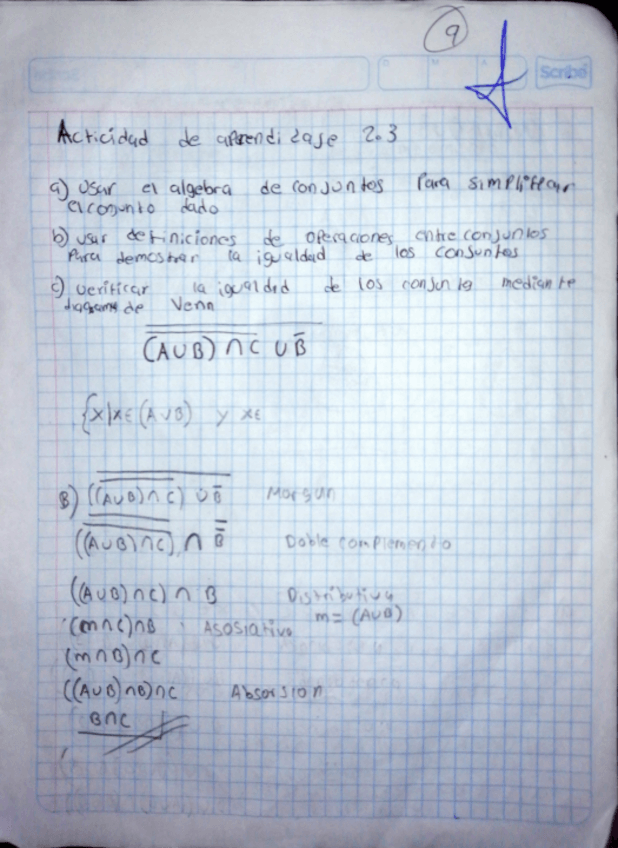 9
Scribe
Acticidad de aprendizaje 2.3
a) Usar el algebra de conjuntos Para simplificar
el conjunto dado
b) usar definiciones de operaciones entre conjuntos
Para demostrar la igualdad de los conjuntos
c) verificar la igualdad de los conjunto mediante
diagrama de Venn
$\overline{\overline{(A∪B) ∩C} ∪ \overline{B}}$
{x|x∈(A∪B) y x∈
B) $\overline{\overline{((A∪B)∩C)} ∪ \overline{B}}$ Morgan
$\overline{\overline{((A∪B)∩C)}} ∩ \overline{\overline{B}}$ Doble complemento
((A∪B)∩C) ∩ B Distributiva
m= (A∪B)
(m∩C)∩B Asosiativa
(m∩B)∩C
((A∪B)∩B)∩C Absorsion
B∩C